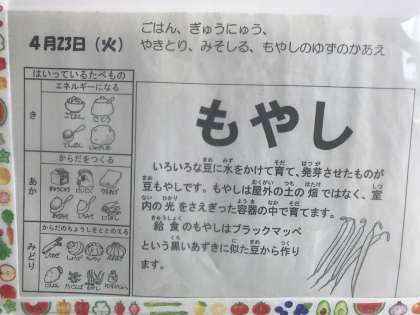 4月23日（火）
ごはん、ぎゅうにゅう、
やきとり、みそしる、もやしのゆずのかあえ
はいっているたべもの
エネルギーになる
き
ごはん
さとう
からだをつくる
あか
からだのちょうしをととのえる
みどり
もやし
もやし
いろいろな豆に水をかけて育て、発芽させたものが
豆もやしです。もやしは屋外の土の畑ではなく、室
内の光をさえぎった容器の中で育てます。
給食のもやしはブラックマッペ
という黒いあずきに似た豆から作り
ます。